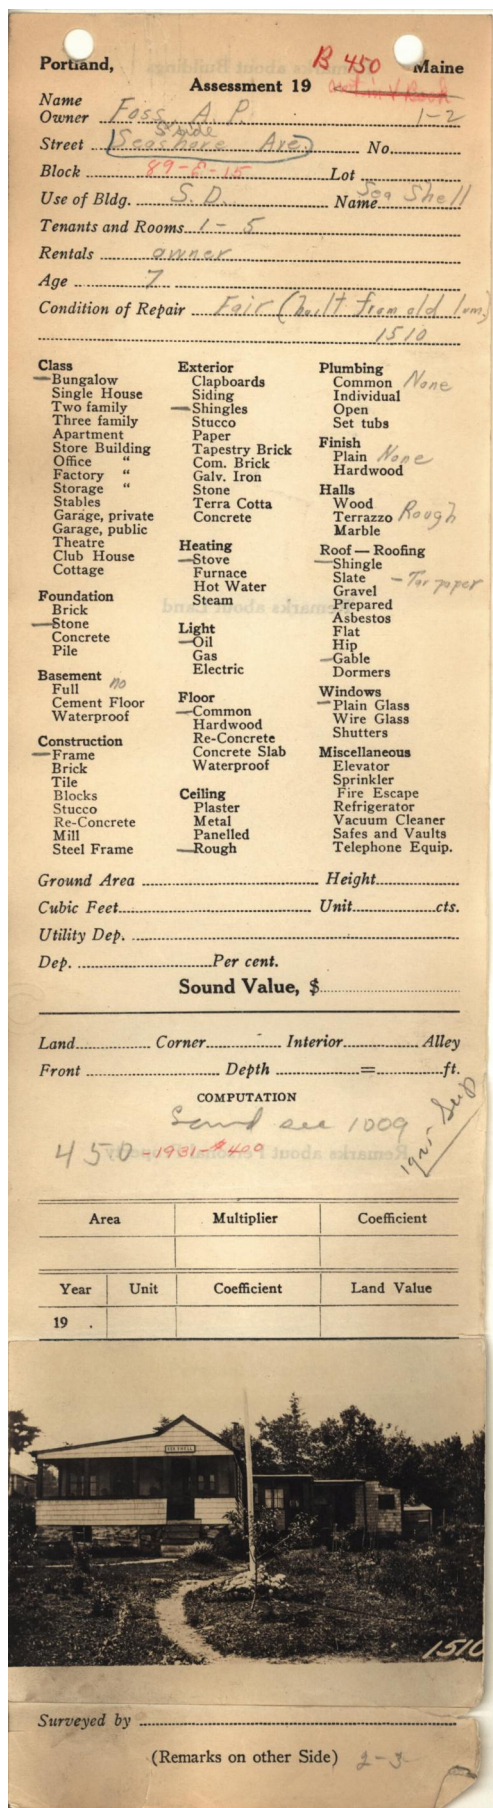 Portland, B 450 Maine
Assessment 19
Name
Owner Foss, A. P. 1-2
Street Seashore Ave. No.
Block 89-E-15 Lot
Use of Bldg. S.D. Name Sea Shell
Tenants and Rooms 1-5
Rentals owner
Age 7
Condition of Repair Fair (built from old lum)
1510
Class
Bungalow
Single House
Two family
Three family
Apartment
Store Building
Office "
Factory "
Storage "
Stables
Garage, private
Garage, public
Theatre
Club House
Cottage
Foundation
Brick
Stone
Concrete
Pile
Basement
Full no
Cement Floor
Waterproof
Construction
Frame
Brick
Tile
Blocks
Stucco
Re-Concrete
Mill
Steel Frame
Exterior
Clapboards
Siding
Shingles
Stucco
Paper
Tapestry Brick
Com. Brick
Galv. Iron
Stone
Terra Cotta
Concrete
Heating
Stove
Furnace
Hot Water
Steam
Light
Oil
Gas
Electric
Floor
Common
Hardwood
Re-Concrete
Concrete Slab
Waterproof
Ceiling
Plaster
Metal
Panelled
Rough
Plumbing
Common None
Individual
Open
Set tubs
Finish
Plain None
Hardwood
Halls
Wood
Terrazzo Rough
Marble
Roof — Roofing
Shingle
Slate - Tar paper
Gravel
Prepared
Asbestos
Flat
Hip
Gable
Dormers
Windows
Plain Glass
Wire Glass
Shutters
Miscellaneous
Elevator
Sprinkler
Fire Escape
Refrigerator
Vacuum Cleaner
Safes and Vaults
Telephone Equip.
Ground Area Height
Cubic Feet Unit cts.
Utility Dep.
Dep. Per cent.
Sound Value, $
Land Corner Interior Alley
Front Depth = ft.
COMPUTATION
see 1009
450 -1931-$400
Area Multiplier Coefficient
Year Unit Coefficient Land Value
19 .
SEA SHELL
1510
Surveyed by
(Remarks on other Side) 2-3